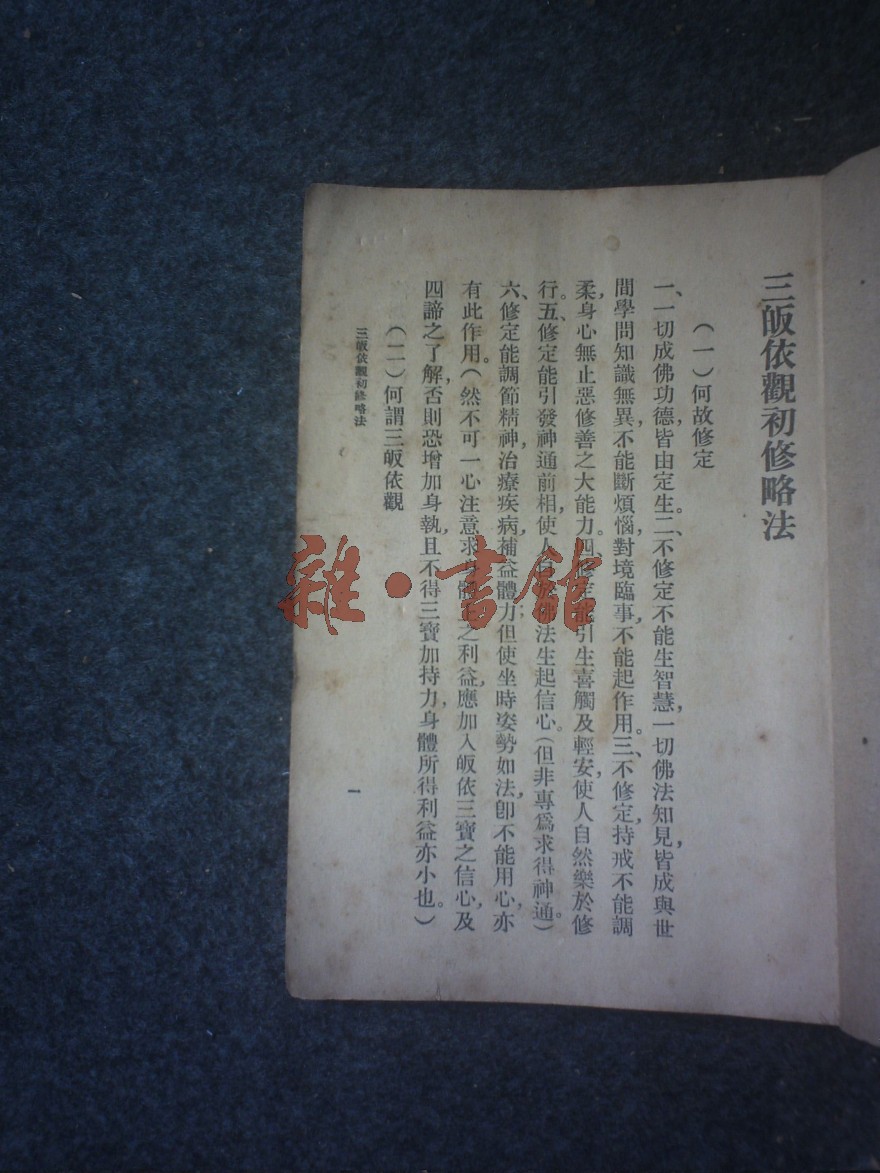 三皈依觀初修略法
（一）何故修定
一、一切成佛功德，皆由定生。二、不修定不能生智慧，一切佛法知見，皆成與世
間學問知識無異，不能斷煩惱，對境臨事，不能起作用。三、不修定，持戒不能調
柔，身心無止惡修善之大能力。四、修定能引生喜觸及輕安，使人自然樂於修
行。五、修定能引發神通前相，使人佛法生起信心。（但非專為求得神通。）
六、修定能調節精神，治療疾病，補益體力，但使坐時姿勢如法，卽不能用心，亦
有此作用。（然不可一心注意求體之利益，應加入皈依三寶之信心，及
四諦之了解，否則恐增加身執，且不得三寶加持力，身體所得利益亦小也。）
（二）何謂三皈依觀
三皈依觀初修略法
一
雜·書館